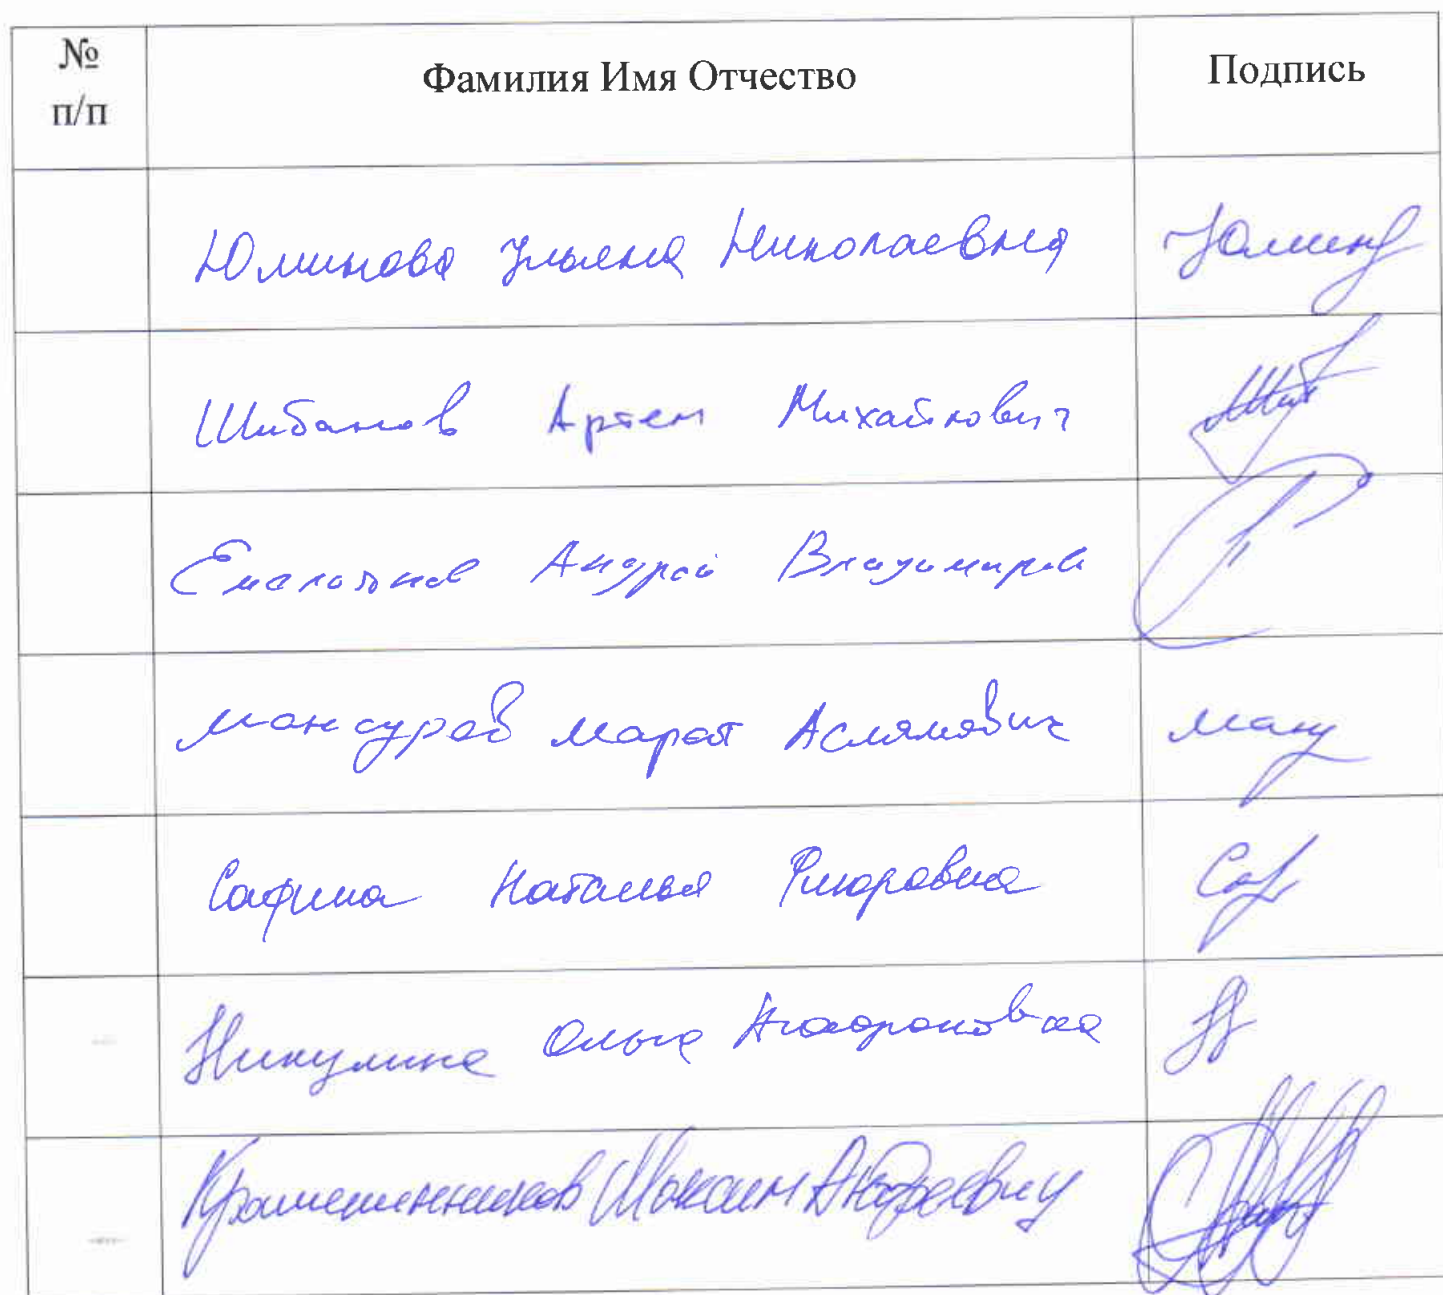 № п/п Фамилия Имя Отчество Подпись
Юминова Ульяна Николаевна Юмин
Шибанов Артем Михайлович
Андрей Владимиров
Мансуров МаратАслямович Манс
Сафина Наталья Флюровна Саф
Никулина Ольга
Крашенинников Максим Андреевич